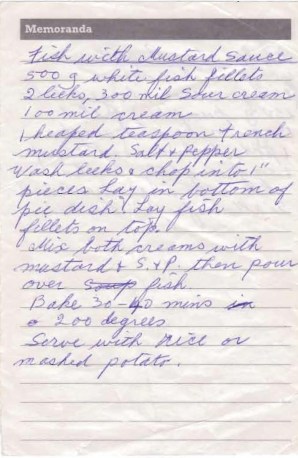 Memoranda
Fish with Mustard Sauce
500 g white fish fillets
2 leeks, 300 mil Sour cream
100 mil cream
1 heaped teaspoon French
mustard, Salt & pepper
Wash leeks & chop into 1"
pieces Lay in bottom of
pie dish. Lay fish
fillets on top.
Mix both creams with
mustard & S. & P. then pour
over soup fish
Bake 30-40 mins in
200 degrees
Serve with rice or
mashed potato.